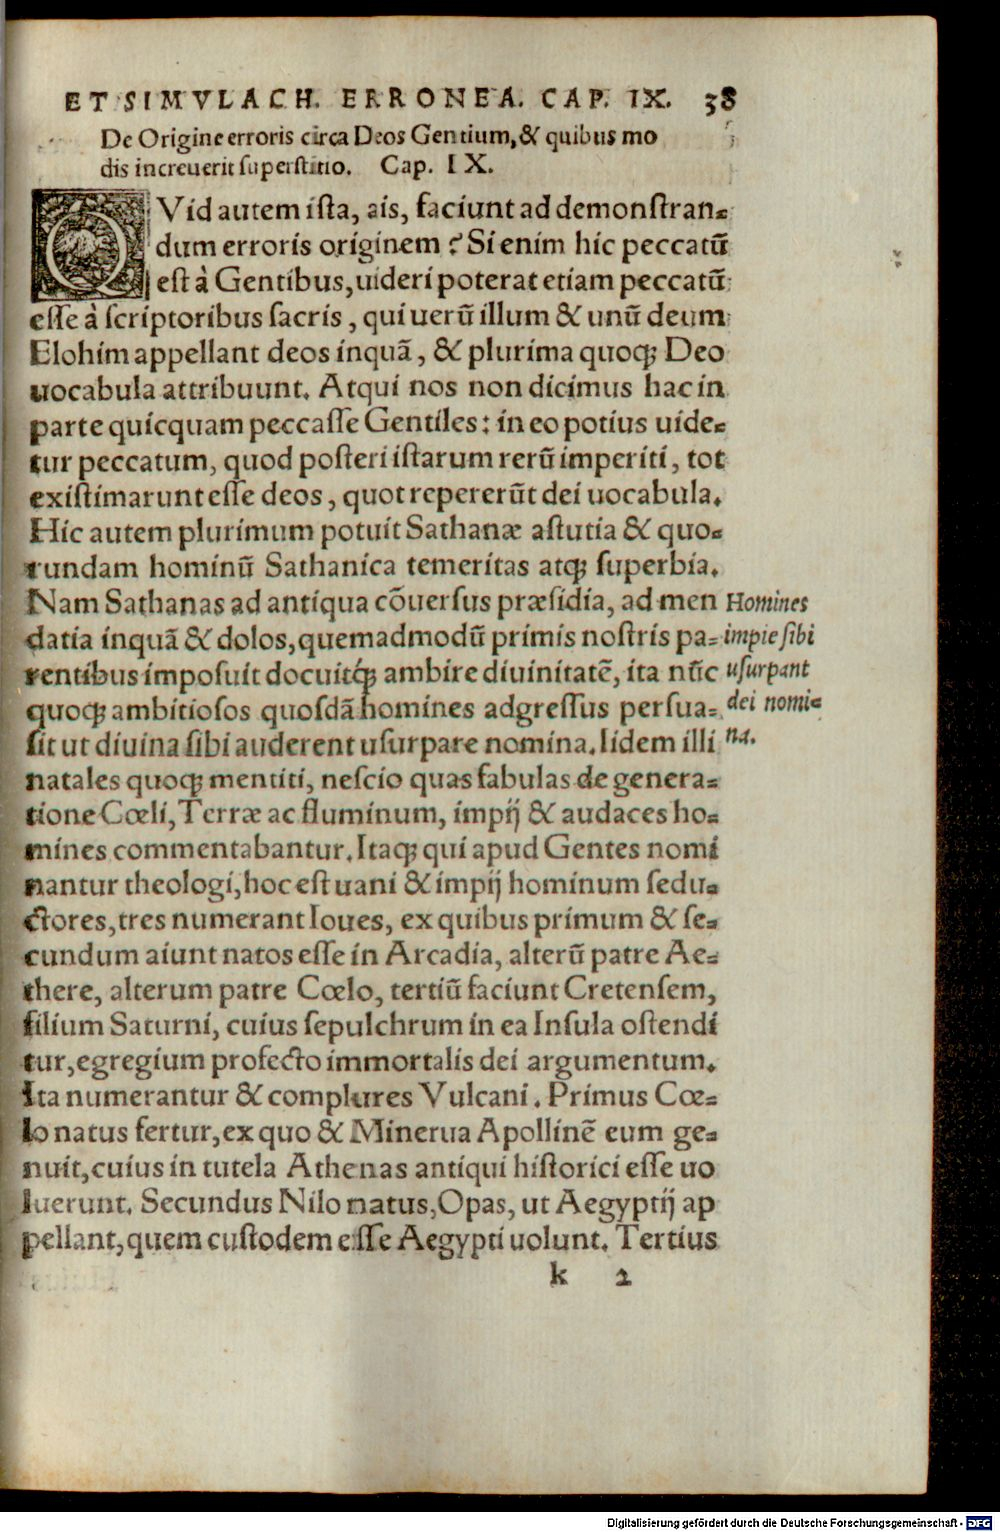 ET SIMVLACH. ERRONEA. CAP. IX. 38
De Origine erroris circa Deos Gentium, & quibus mo
dis increuerit superstitio. Cap. IX.
QVid autem ista, ais, faciunt ad demonstran⸗
dum erroris originem? Si enim hic peccatū
est à Gentibus, uideri poterat etiam peccatū
esse à scriptoribus sacris, qui uerū illum & unū deum
Elohim appellant deos inquā, & plurima quoq; Deo
uocabula attribuunt. Atqui nos non dicimus hac in
parte quicquam peccasse Gentiles: in eo potius uide⸗
tur peccatum, quod posteri istarum rerū imperiti, tot
existimarunt esse deos, quot repererūt dei uocabula.
Hic autem plurimum potuit Sathanæ astutia & quo⸗
rundam hominū Sathanica temeritas atq; superbia.
Nam Sathanas ad antiqua cōuersus præsidia, ad men
datia inquā & dolos, quemadmodū primis nostris pa⸗
rentibus imposuit docuitq́; ambire diuinitatē, ita nūc
quoq; ambitiosos quosdā homines adgressus persua⸗
sit ut diuina sibi auderent usurpare nomina. Iidem illi
natales quoq; mentiti, nescio quas fabulas de genera⸗
tione Cœli, Terræ ac fluminum, impij & audaces ho⸗
mines commentabantur. Itaq; qui apud Gentes nomi
nantur theologi, hoc est uani & impij hominum sedu⸗
ctores, tres numerant Ioues, ex quibus primum & se⸗
cundum aiunt natos esse in Arcadia, alterū patre Ae⸗
there, alterum patre Cœlo, tertiū faciunt Cretensem,
filium Saturni, cuius sepulchrum in ea Insula ostendi
tur, egregium profecto immortalis dei argumentum.
Ita numerantur & complures Vulcani. Primus Cœ⸗
lo natus fertur, ex quo & Minerua Apollinē eum ge⸗
nuit, cuius in tutela Athenas antiqui historici esse uo
luerunt. Secundus Nilo natus, Opas, ut Aegyptij ap
pellant, quem custodem esse Aegypti uolunt. Tertius
k 2
Homines
impie sibi
usurpant
dei nomi⸗
na.
Digitalisierung gefördert durch die Deutsche Forschungsgemeinschaft - DFG